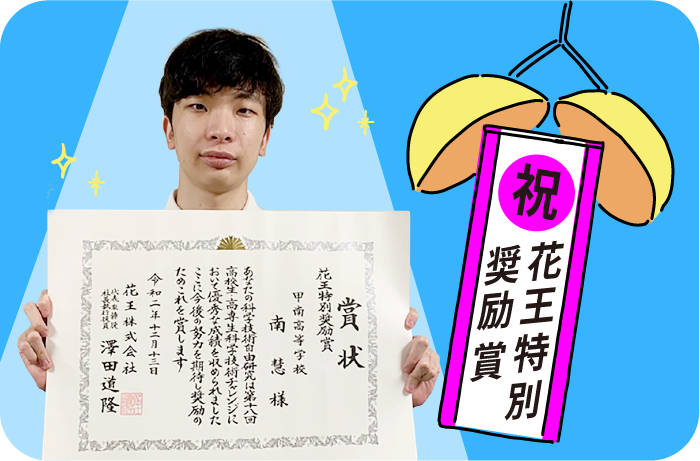 賞状
花王特別奨励賞
甲南高等学校
南慧様
あなたの科学技術自由研究は第十八回
高校生・高専生科学技術チャレンジに
おいて優秀な成績を収められました
ここに今後の努力を期待し奨励の
ためこれを賞します
令和二年十二月十三日
花王株式会社
代表取締役
社長執行役員
澤田道隆
祝
花王特別
奨励賞